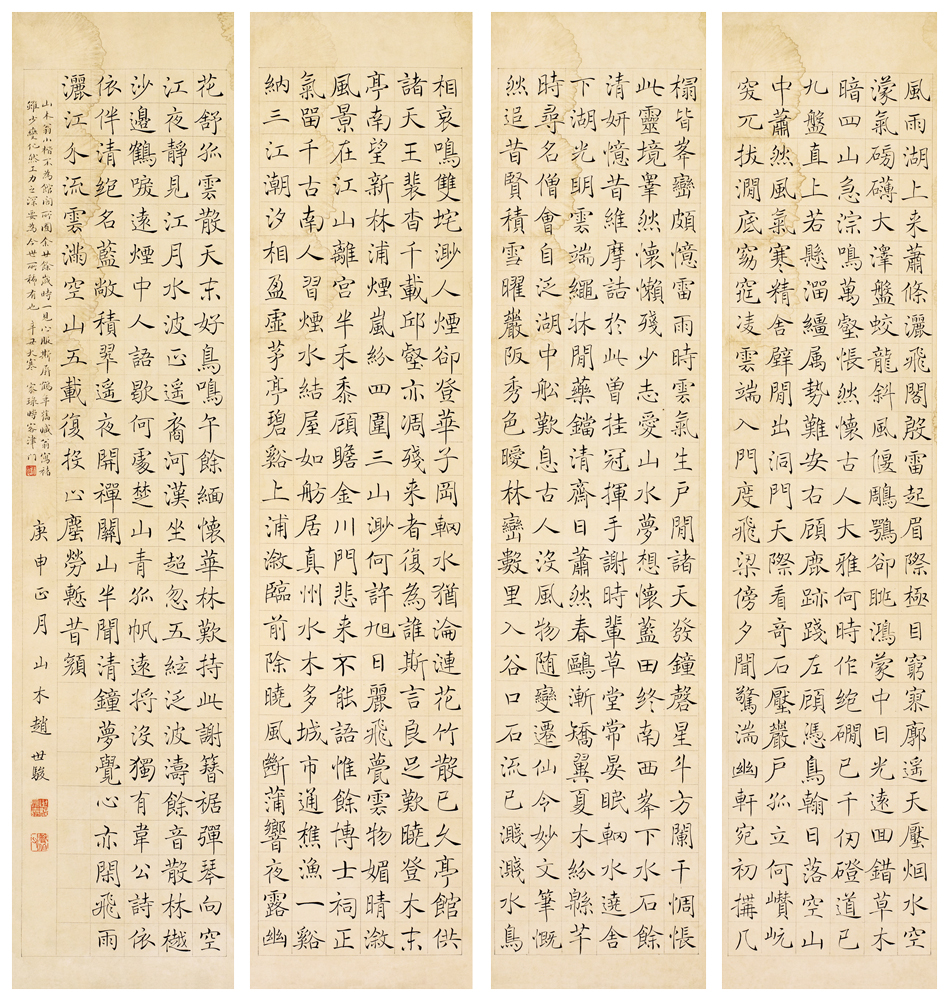 風雨湖上来蕭條灑飛閣殷雷起眉際極目窮寥廓遥天壓烟水空
濛氣礴礴大澤盤蛟龍斜風偃鵰鶚卻眺鴻蒙中日光遠囬錯草木
暗四山急淙鳴萬壑悵然懷古人大雅何時作絶磵已千仞磴道已
九盤直上若懸溜繮属勢難安右顧鹿跡踐左顧憑鳥翰日落空山
中蕭然風氣寒精舍壁閒出洞門天際看奇石壓巖戶孤立何巑岏
突兀拔澗底窈窕凌雲端入門度飛梁傍夕聞驚湍幽軒宛初構几
榻皆峯巒頗憶雷雨時雲氣生戶閒諸天發鐘磬星斗方闌干惆悵
此靈境睾然懷懶殘少志愛山水夢想懷藍田終南西峯下水石餘
清妍憶昔維摩詰於此曽挂冠揮手謝時輩草堂常晏眠輞水遶舍
下湖光明雲端繩牀閒藥鐺清齋日蕭然春鷗漸矯翼夏木紛緜芊
時尋名僧會自泛湖中船歎息古人没風物随變遷仙令妙文筆慨
然追昔賢積雪曜巖阪秀色曖林巒數里入谷口石流已濺濺水鳥
相哀鳴雙垞渺人煙卻登華子岡輞水猶淪漣花竹散已久亭館供
諸天王裴杳千載邱壑亦凋殘来者復為誰斯言良足歎曉登木末
亭南望新林浦煙嵐紛四圍三山渺何許旭日麗飛甍雲物媚晴漵
風景在江山離宮半禾黍顧瞻金川門悲来不能語惟餘博士祠正
氣留千古南人習煙水結屋如舫居真州水木多城市通樵漁一谿
納三江潮汐相盈虚茅亭碧谿上浦漵臨前除曉風斷蒲響夜露幽
花舒孤雲散天末好鳥鳴午餘緬懷華林歎持此謝簪裾彈琴向空
江夜靜見江月水波正遥裔河漢坐超忽五絃泛波濤餘音散林樾
沙邊鶴唳遠煙中人語歇何處楚山青孤帆遠将没獨有韋公詩依
依伴清絶名藍敞積翠遥夜開禪關山半聞清鐘夢覺心亦閑飛雨
灑江水流雲滿空山五載復投止塵勞慙昔顔
庚申正月山木趙世駿
山木翁小楷不為館閣所囿余廿餘歲時一見心服斯
雖少變化然工力之深要為今世所稀有也辛丑大寒家琭時客津門